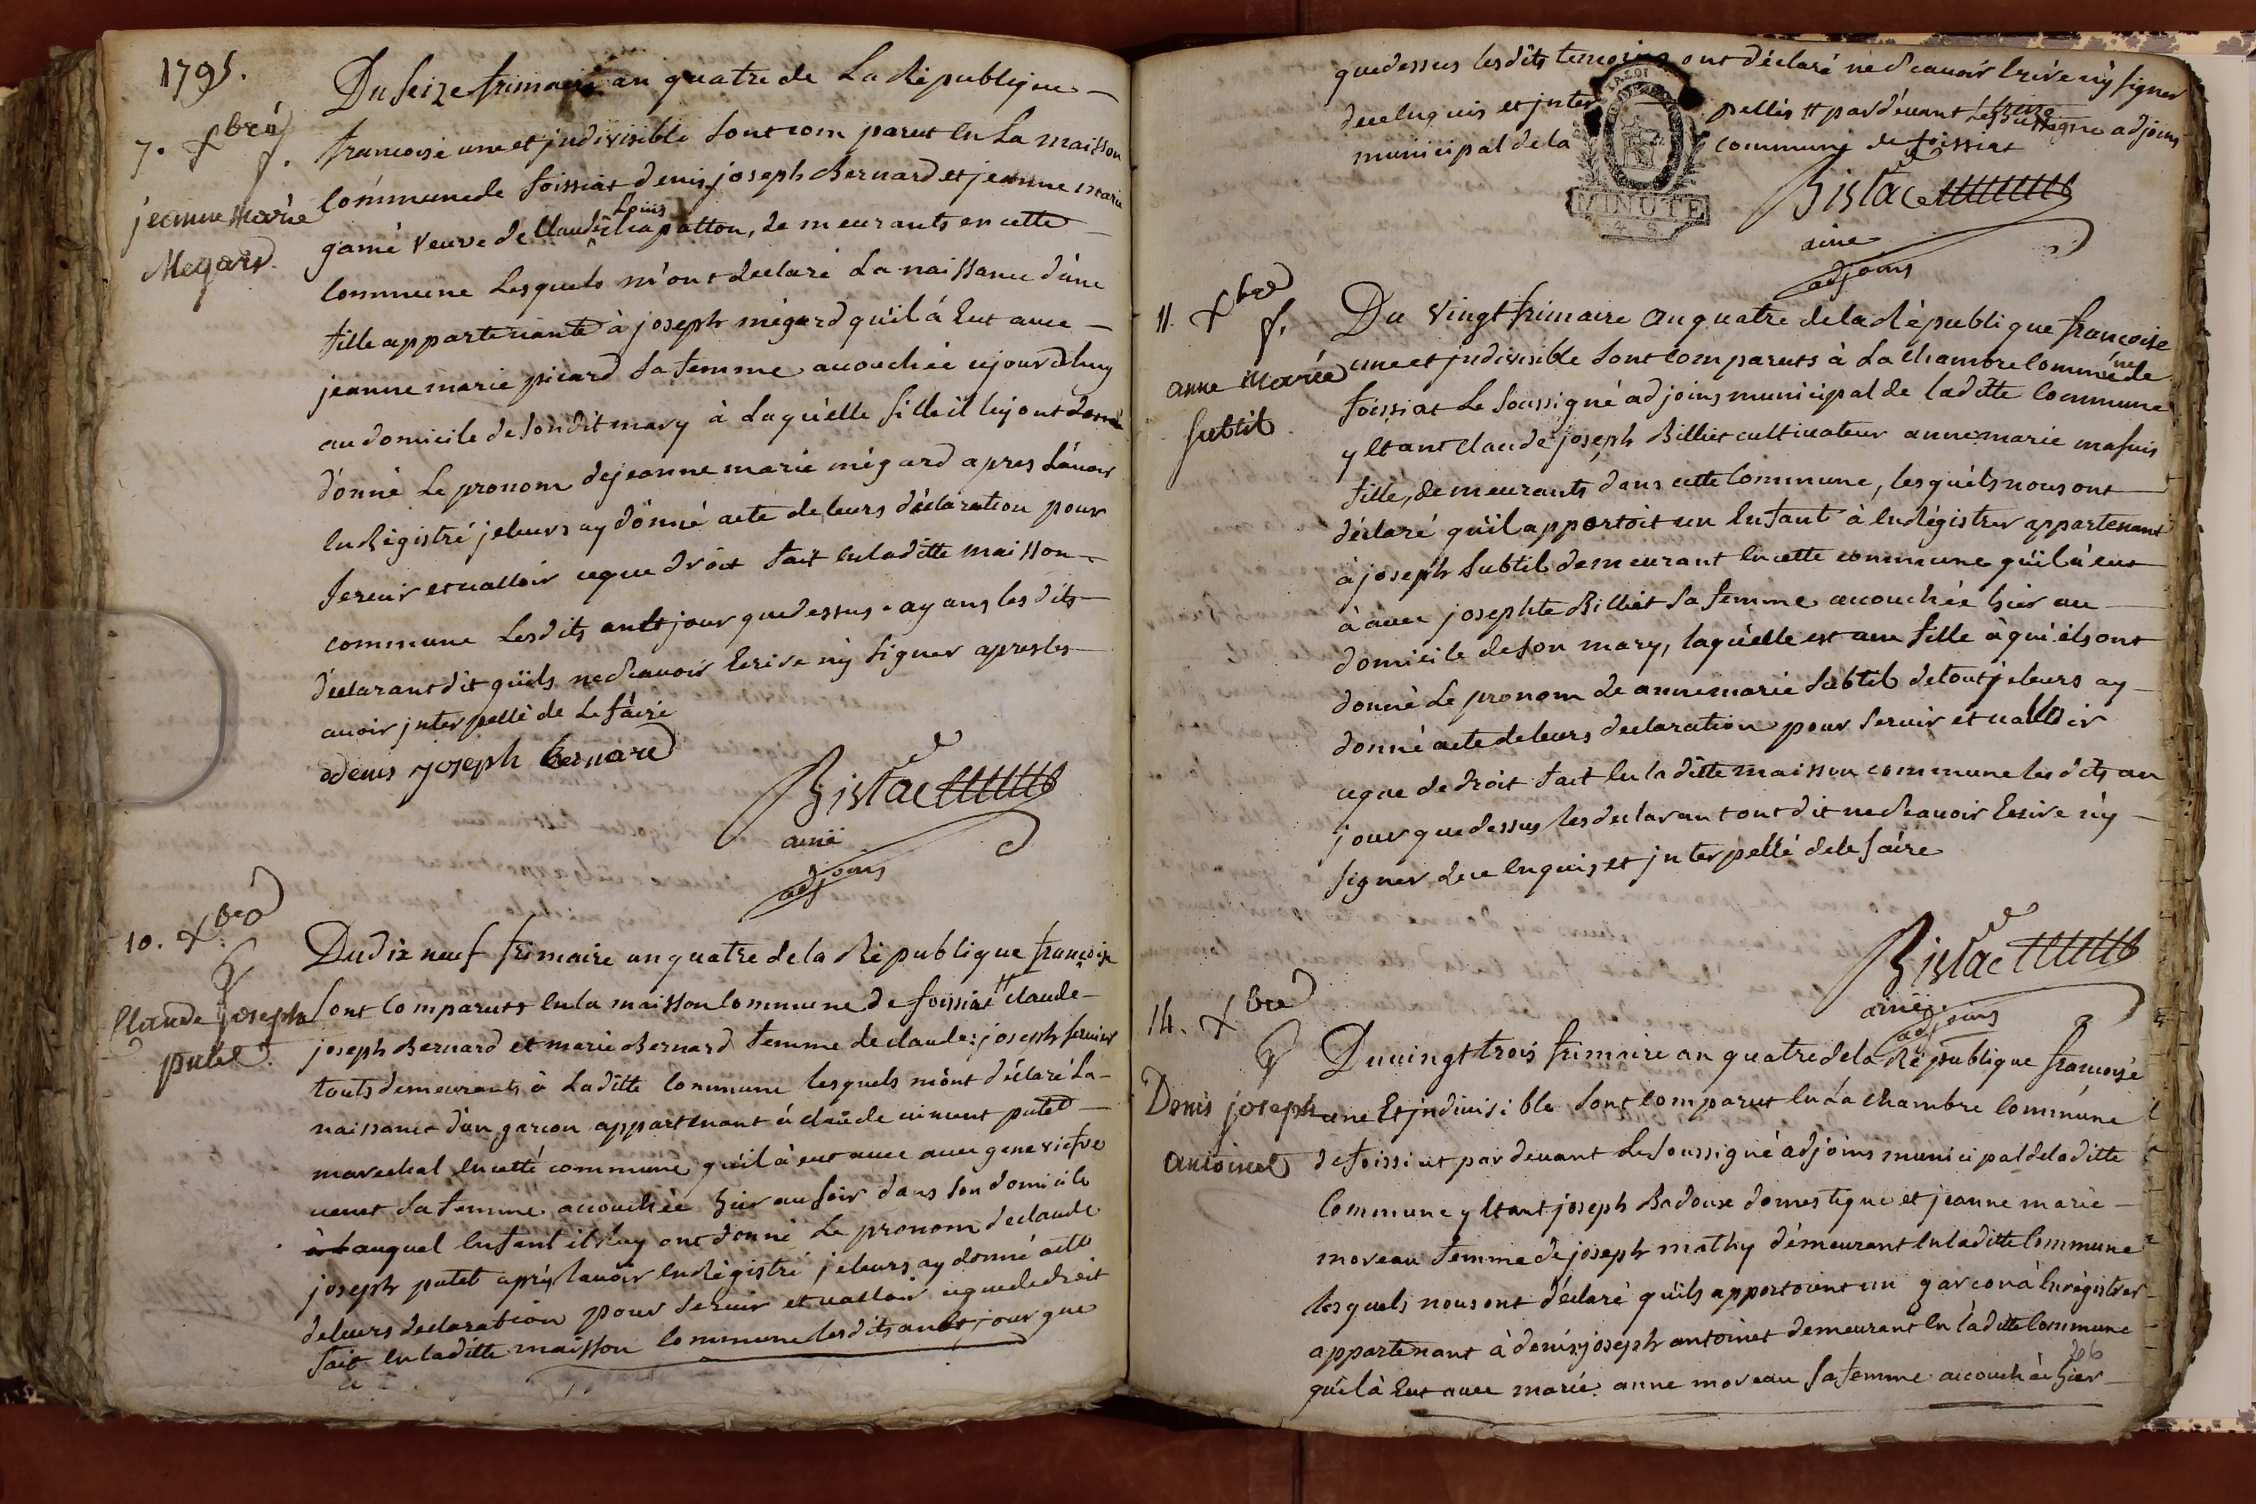 1795.
7. Xbre
f.
jeanne Marie
Megard.
Du seize frimaire an quatre de La Republique
francoise une et jndivisible sont com parut en La maisson
commune de foissiat denis joseph Bernard et jeanne marie
gamé veuve de Claude Louis patton, de meurants en cette
commune Lesquels m'ont declaré La naissance d'une
fille appartenante à joseph mégard qu'il à Eut avec
jeanne marie picard sa femme accouchée cejourdhuy
au domicile de son dit mary à Laqu'elle fille il luy ont
d'onné Le pronom de jeanne marie mégard apres Lávoir
enRégistré je leurs ay d'onné acte de leurs déclaration pour
servir et valloir ceque droit fait en laditte maisson
commune Lesdits ans et jour quedessus. ayans les dits
déclarant dit qu'ils ne scavoir Ecrire ny signer apres les
avoir jnterpellé de Le fáire
denis joseph bernard
Bistac
ainé
adjoins
10. Xbre
G
Claude joseph
putet.
Du dix neuf frimaire an quatre de la Ré publique françoise
sont comparuts en la maisson commune de foissiat claude
joseph Bernard et marie Bernard femme de claude: joseph
touts demeurants à Laditte commune lesquels m'ont d'éclaré La
naissance d'un garcon appartenant à claude vincent putet
marechal en cette commune qu'il à eut avec avec genevieve
venet sa femme accouchée hier au soir dans son domicile
auquel enfant il luy ont donné Le pronom de claude
joseph putet aprés lavoir enRégistré je leurs ay donné acte
de leurs declaration pour servir et valloir ceque de droit
fait en laditte maisson commune lesdits an et jour que
quedessus lesdits temoins ont déclaré ne scavoir Ecrire ny signer
de ce enquis et jnter pellés par devant Le soussigné adjoins
municipal de la commune de foissiat
MINUTE
Bistac
ainé
adjoins
11. Xbre
f.
anne Marie
subtil
Du vingt frimaire an quatre de la République francoise
une et jndivisible sont comparuts à La chambre commune de
foissiat Le soussigné adjoins municipal de laditte commune
y Etant claude joseph Billiet cultivateur anne marie
fille, demeurants dans cette commune, lesquéls nous ont
déclaré qu'il apportoit un Enfant à enRégistrer appartenant
à joseph subtil demeurant en cette commune qu'il à eut
à avec josephte Billiet sa femme accouchée hier au
domicile de son mary, laquélle est une fille à qui ils ont
donné Le pronom de anne marie subtil de tout je leurs ay
donné acte de leurs declaration pour servir et valloir
ceque de droit fait en la ditte maisson commune les dits an
jour quedessus les declarant ont dit ne scavoir Ecrire n'y
signer de ce enquis et jnterpellé de le fáire
Bistac
ainé
adjoins
14. Xbre
G
Denis joseph
antoinet
Du vingt trois frimaire an quatre de la République francoise
une Et jndivisible sont comparut en La chambre commúne
de foissiat par devant Le soussigné adjoins municipal de laditte
commune y Etant joseph Badoux domestique et jeanne marie
moreau femme de joseph mathy démeurant en laditte commune
lesquels nous ont déclaré qu'ils apportoient un garcon à Enrégistrer
appartenant à denis joseph antoinet demeurant en laditte commune
qu'il à Eut avec marie anne moreau sa femme accouchée hier